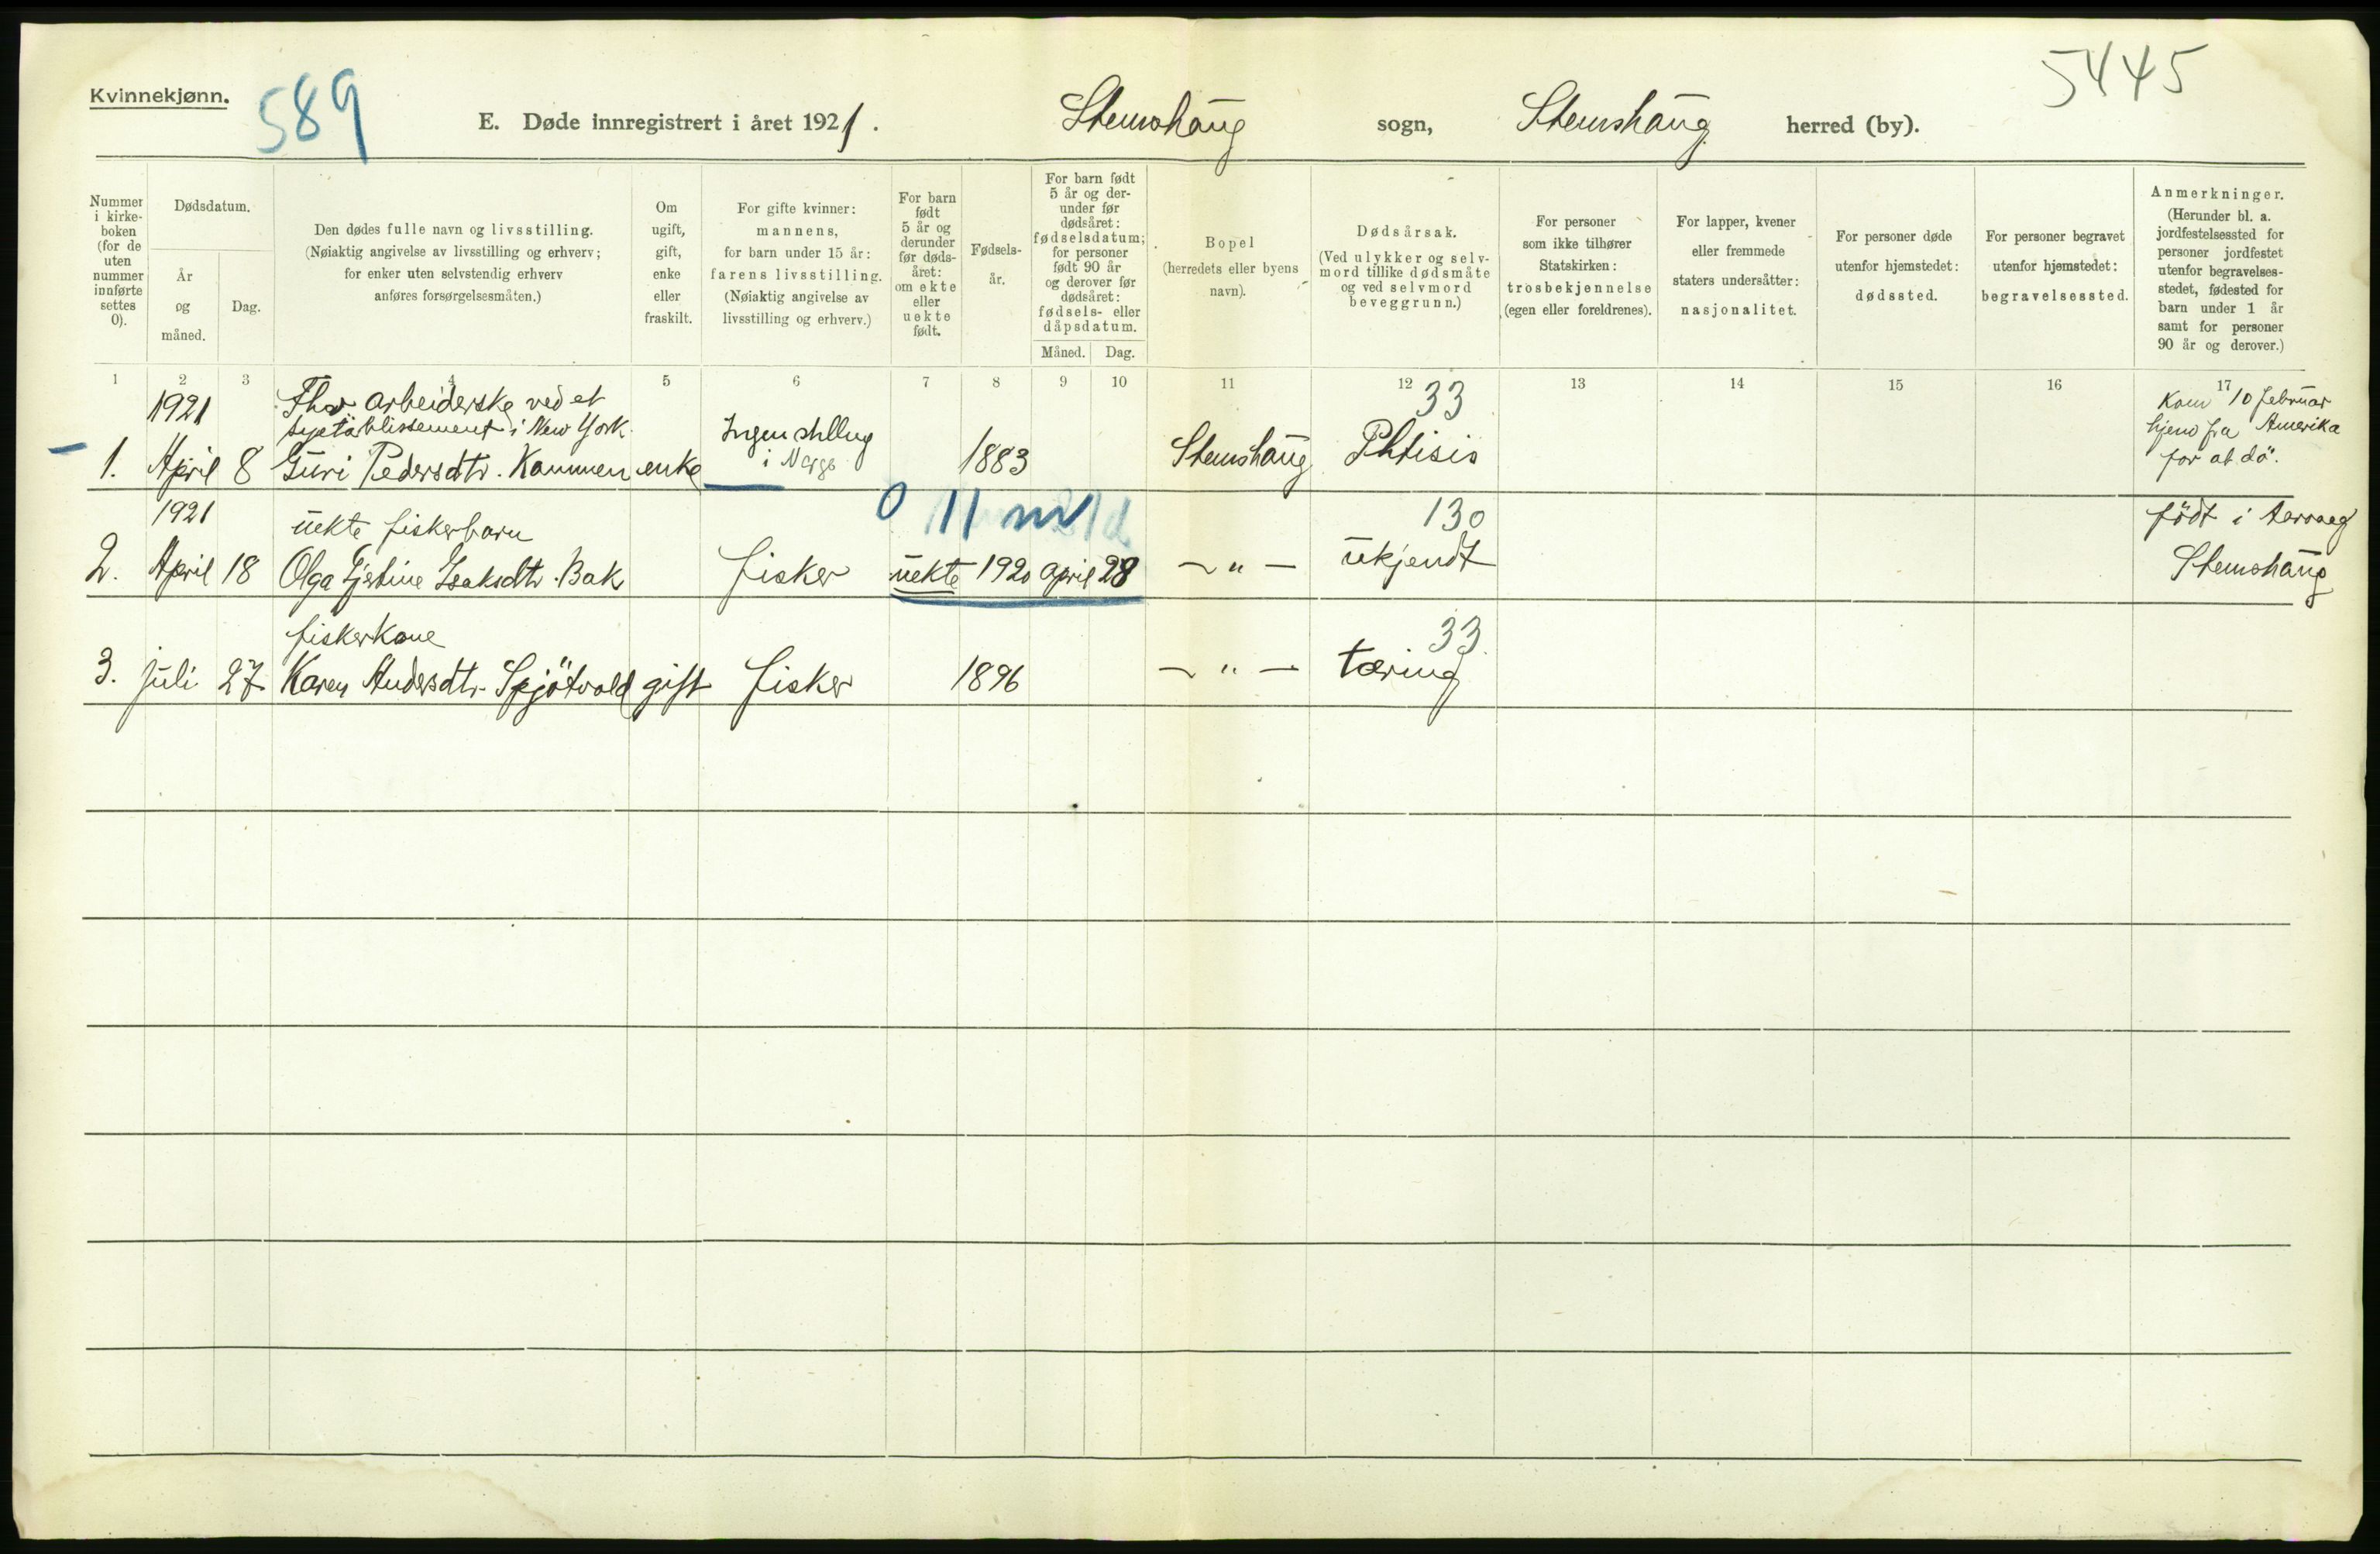 Kvinnekjønn.
589
E. Døde innregistrert i året 1921.
Stemshaug sogn, Stemshaug herred (by).
5445
Nummer i kirke-boken (for de uten nummer innførte settes 0).
Dødsdatum.
År og måned.
Dag.
Den dødes fulle navn og livsstilling.
(Nøiaktig angivelse av livsstilling og erhverv;
for enker uten selvstendig erhverv
anføres forsørgelsesmåten.)
Om ugift, gift, enke eller fraskilt.
For gifte kvinner:
mannens,
for barn under 15 år:
farens livsstilling.
(Nøiaktig angivelse av
livsstilling og erhverv.)
For barn født 5 år og derunder før døds-året: om ekte eller uekte født.
Fødsels-
år.
For barn født
5 år og der-
under før
dødsåret:
fødselsdatum;
for personer
født 90 år
og derover før
dødsåret:
fødsels- eller
dåpsdatum.
Måned. Dag.
Bopel
(herredets eller byens
navn).
Dødsårsak.
(Ved ulykker og selv-
mord tillike dødsmåte
og ved selvmord
beveggrunn.)
For personer
som ikke tilhører
Statskirken:
trosbekjennelse
(egen eller foreldrenes).
For lapper, kvener
eller fremmede
staters undersåtter:
nasjonalitet.
For personer døde
utenfor hjemstedet:
dødssted.
For personer begravet
utenfor hjemstedet:
begravelsessted.
Anmerkninger.
(Herunder bl. a.
jordfestelsessted for
personer jordfestet
utenfor begravelses-
stedet, fødested for
barn under 1 år
samt for personer
90 år og derover.)
1 2 3 4 5 6 7 8 9 10 11 12 13 14 15 16 17
1921 arbeiderske ved et 33 Kom 10 februar
syetablissement i New York. Ingen i Norge hjem fra Amerika
1. April 8 Guri Pedersdtr. Kammen enke 1883 Stemshaug Phtisis for at dö.
1921 uekte fiskerbarn 0 11 130 födt i
2. April 18 Olga Isaksdtr. Bak fisker uekte 1920 april 28 — " — ukjendt Stemshaug
fiskerkone 33
3. juli 27 Karen Andersdtr. Spjötvold gift fisker 1896 — " — tæring